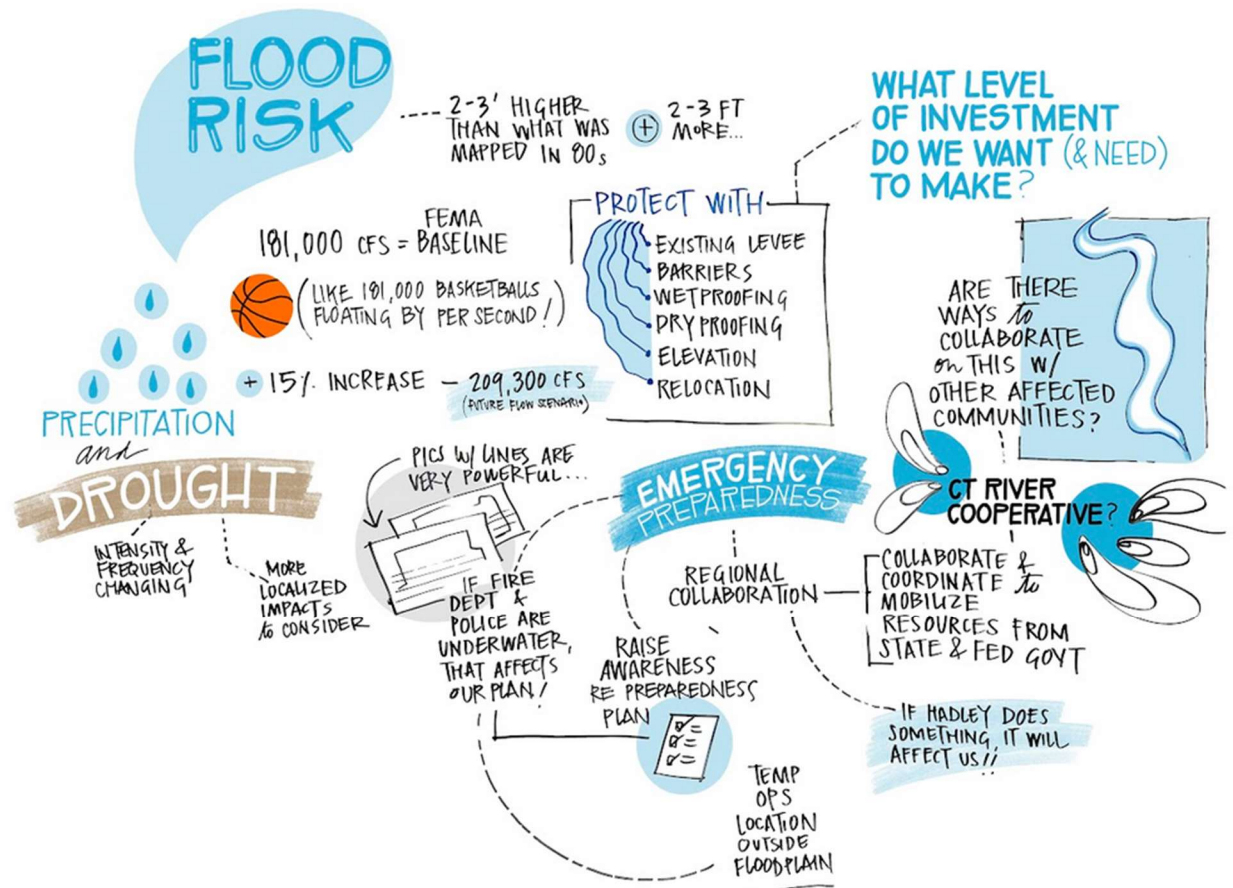 FLOOD
RISK
2-3' HIGHER
THAN WHAT WAS
MAPPED IN 80s
+
2-3 FT
MORE...
WHAT LEVEL
OF INVESTMENT
DO WE WANT (& NEED)
TO MAKE?
181,000 CFS = FEMA
BASELINE
(LIKE 181,000 BASKETBALLS
FLOATING BY PER SECOND!)
+ 15% INCREASE – 209,300 CFS
(FUTURE FLOW SCENARIO)
PROTECT WITH
EXISTING LEVEE
BARRIERS
WETPROOFING
DRYPROOFING
ELEVATION
RELOCATION
ARE THERE
WAYS to
COLLABORATE
on THIS W/
OTHER AFFECTED
COMMUNITIES?
CT RIVER
COOPERATIVE?
PRECIPITATION
and
DROUGHT
INTENSITY &
FREQUENCY
CHANGING
MORE
LOCALIZED
IMPACTS
to CONSIDER
PICS W/ LINES ARE
VERY POWERFUL...
EMERGENCY
PREPAREDNESS
IF FIRE
DEPT &
POLICE ARE
UNDERWATER,
THAT AFFECTS
OUR PLAN!
RAISE
AWARENESS
RE PREPAREDNESS
PLAN
REGIONAL
COLLABORATION
COLLABORATE &
COORDINATE to
MOBILIZE
RESOURCES FROM
STATE & FED GOVT
IF HADLEY DOES
SOMETHING, IT WILL
AFFECT US!!
TEMP
OPS
LOCATION
OUTSIDE
FLOODPLAIN